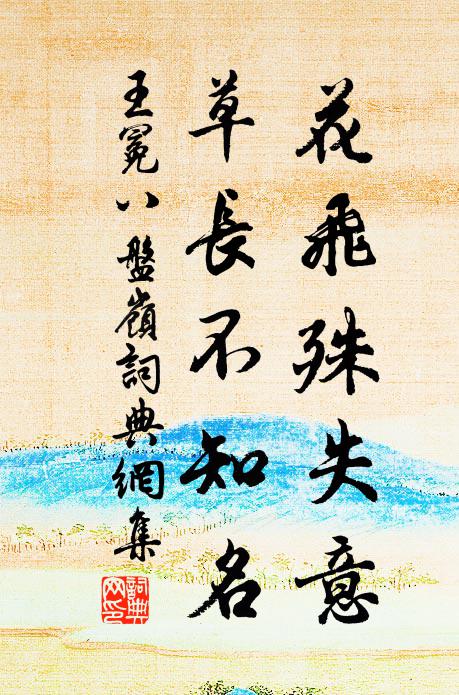 花飛殊失意
草長不知名
王冕八盤嶺詞典網集
詞典
网印